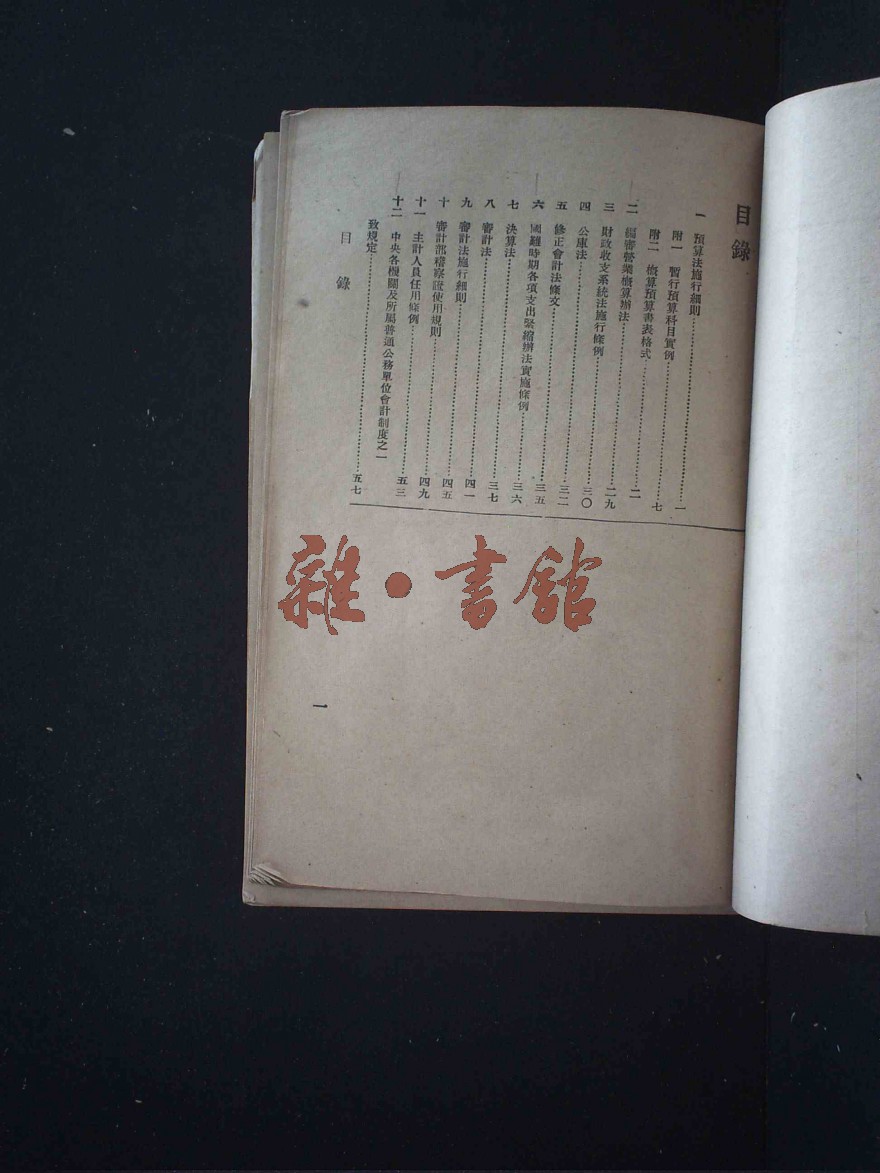 目錄
一 預算法施行細則……一
附一 暫行預算科目實例
附二 概算預算書表格式……七
二 編審營業概算辦法……二
三 財政收支系統法施行條例……二九
四 公庫法……三〇
五 修正會計法條文……三二
六 國難時期各項支出緊縮辦法實施條例……三五
七 決算法……三六
八 審計法……三七
九 審計法施行細則……四一
十 審計部稽察證使用規則……四五
十一 主計人員任用條例……四九
十二 中央各機關及所屬普通公務單位會計制度之一
致規定……五七
五三
目錄
一
雜·書館